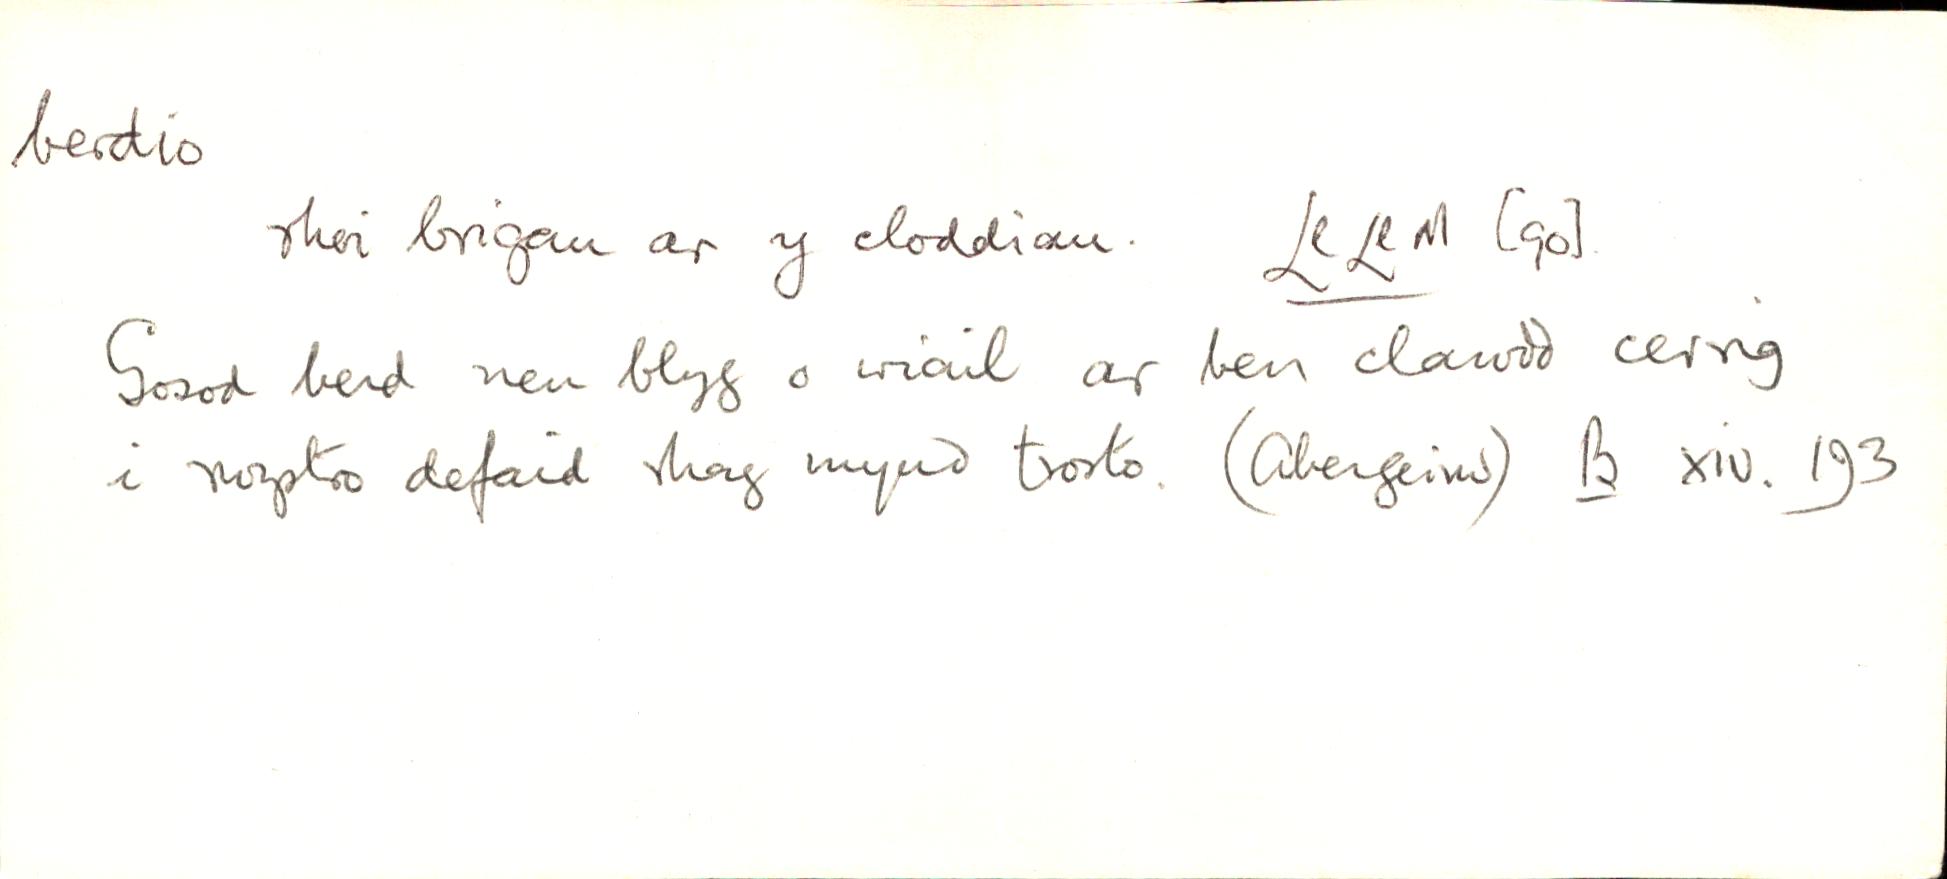 berdio
rhoi brigau ar y cloddiau. LlLlM [90].
Gosod berd neu blyg o wiail ar ben clawdd cerrig
i rwystro defaid rhag mynd trosto. (Abergeirw) B xiv. 193